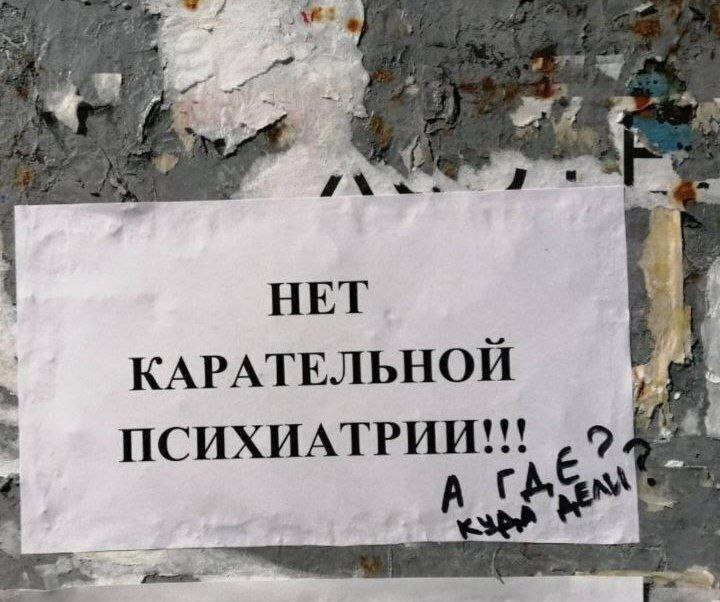 НЕТ
КАРАТЕЛЬНОЙ
ПСИХИАТРИИ!!!
А ГДЕ?
КУДА ДЕЛИ?